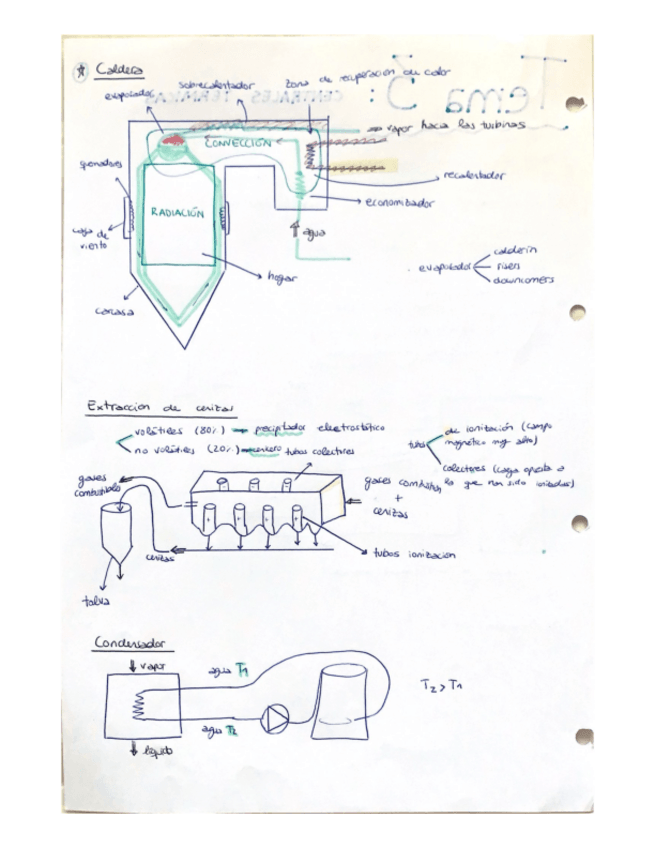 Caldera
sobrecalentador
zona de recuperación de calor
evaporador
CONVECCIÓN
vapor hacia las turbinas
quemadores
recalentador
RADIACIÓN
economizador
caja de
viento
agua
hogar
carcasa
evaporador
calderin
risers
downcomers
Tema 3:
CENTRALES TÉRMICAS
Extracción de cenizas
volátiles (80%) → precipitador electrostático
no volátiles (20%) → cenicero
tubos colectores
tubos
de ionización (campo
magnético muy alto)
colectores (carga opuesta a
la que han sido ionizados)
gases
combustible
gases combustión
+
cenizas
cenizas
tubos ionización
tolva
Condensador
vapor
agua T1
T2 > T1
agua T2
líquido